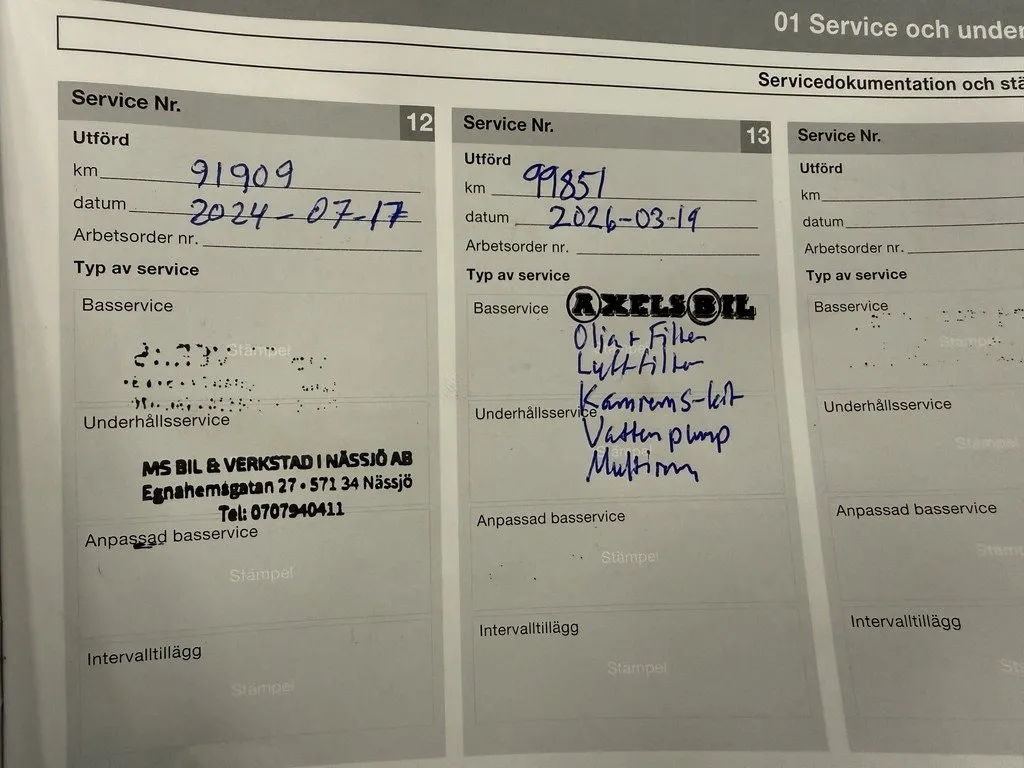 01 Service och under
Servicedokumentation och stä
Service Nr. 12
Utförd
km 91909
datum 2024-07-17
Arbetsorder nr.
Typ av service
Basservice
Stämpel
Underhållsservice
MS BIL & VERKSTAD I NÄSSJÖ AB
Egnahemsgatan 27 • 571 34 Nässjö
Tel: 0707940411
Anpassad basservice
Stämpel
Intervalltillägg
Stämpel
Service Nr. 13
Utförd
km 99851
datum 2026-03-19
Arbetsorder nr.
Typ av service
Basservice
AXELS BIL
Olja + Filter
Luftfilter
Kamrems-kit
Underhållsservice
Vattenpump
Multirem
Anpassad basservice
Stämpel
Intervalltillägg
Stämpel
Service Nr.
Utförd
km
datum
Arbetsorder nr.
Typ av service
Basservice
Stämpel
Underhållsservice
Stämpel
Anpassad basservice
Stäm
Intervalltillägg
St